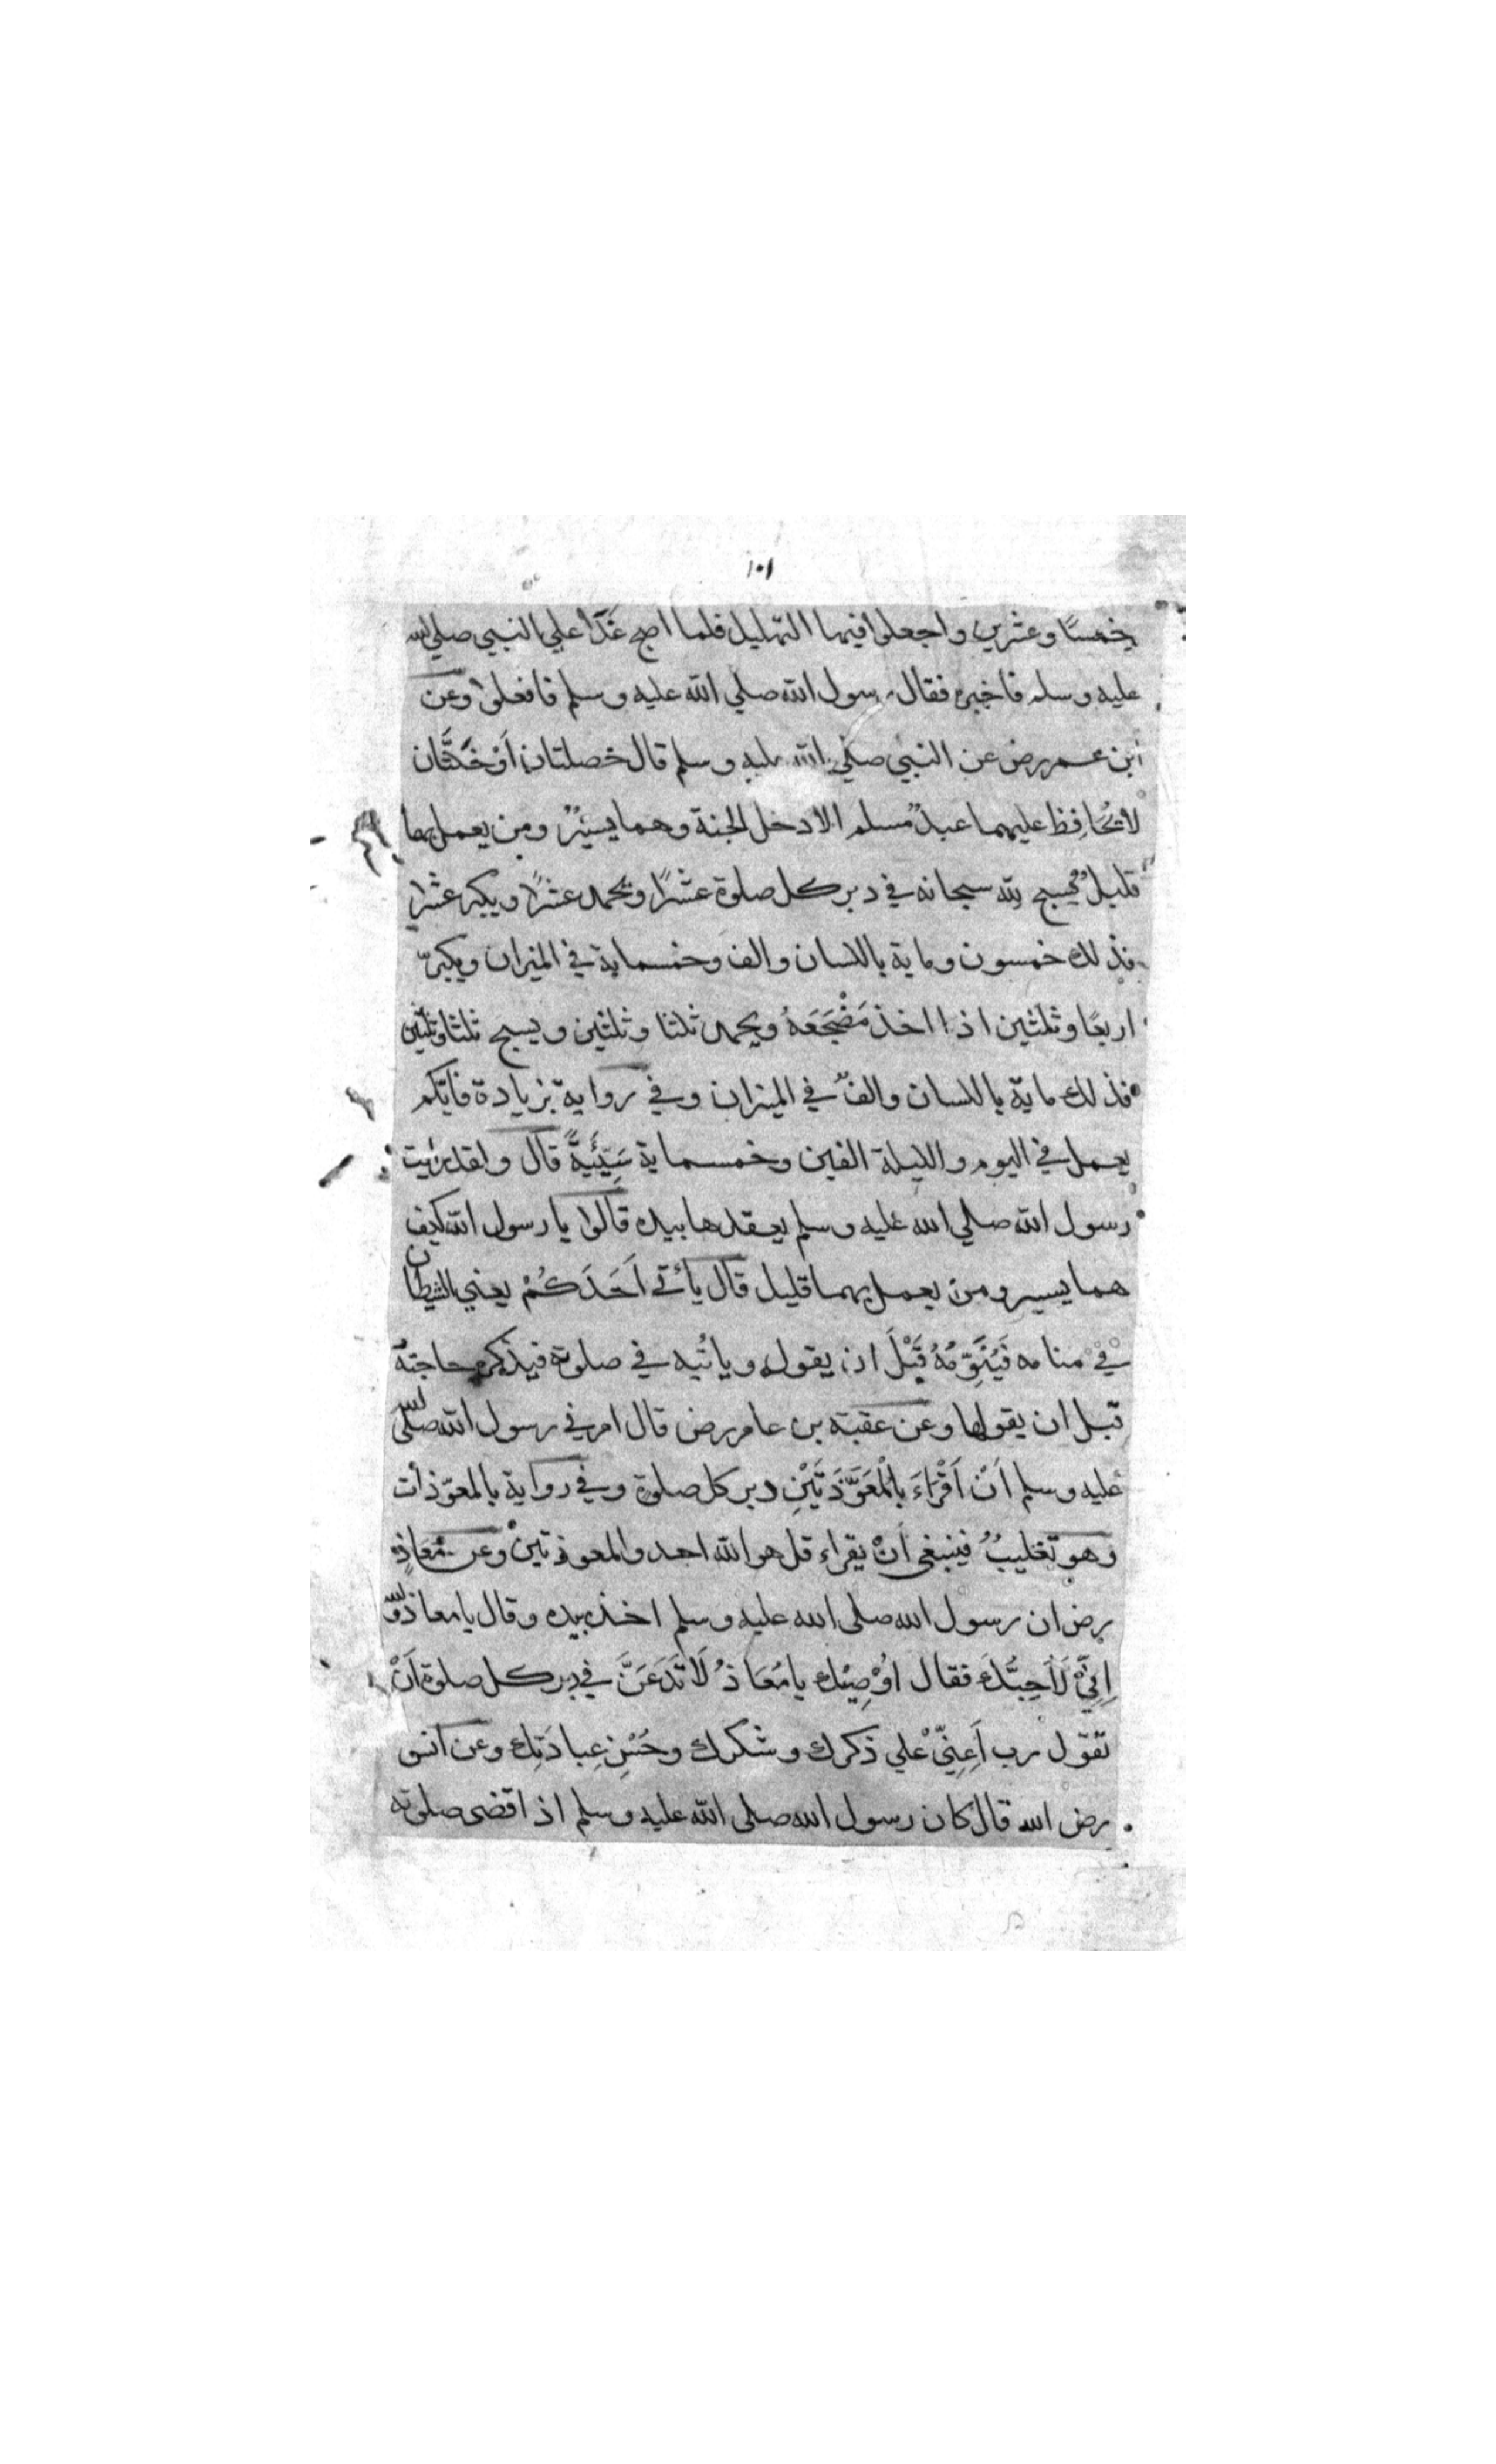 ١٠١
خمسًا وعشرين واجعلوا فيها التهليل فلما اصبح غَدَا علي النبي صلي الله
عليه وسلم فاخبره فقال رسول الله صلي الله عليه وسلم فافعلوا وعن
ابن عمر رض عن النبي صلي الله عليه وسلم قال خصلتان اَوْ خَلَّتَان
لا يُحَافِظ عليهما عبدٌ مُسلم الا دخل الجنة وهما يسيْرٌ ومن يعمل بهما
قليلٌ يُسبح لله سبحانه في دبر كل صلوة عشرًا ويحمد عشرًا ويكبر عشرا
فذلك خمسون وماية باللسان والف وخمسماية في الميزان ويكبرّ
اربعًا وثلثين اذا اخذ مَضْجَعَهُ ويحمد ثلثا وثلثين ويسبح ثلثا وثلثين
فذلك ماية باللسان والفٌ في الميزان وفي رواية بزيادة فايكم
يعمل في اليوم والليلة الفين وخمسماية سَيِّئَيةً قال ولقد رايت
رسول الله صلي الله عليه وسلم يعقدها بيده قالوا يا رسول الله كيف
هما يسير ومن يعمل بهما قليل قال يأتي اَحَدَكُمْ يعني الشيطان
في منامه فَيُنَوِّمُهُ قَبْلَ ان يقول وياتُيه في صلوته فيذكره حاجتهُ
قبل ان يقولها وعن عقبة بن عامر رض قال امرني رسول الله صلي الله
عليه وسلم اَنْ اَقْرَاءَ بالْمُعَوَّذَتَيْنِ دبر كل صلوة وفي رواية بالمعوّذات
وهو تغليبٌ فينبغي اَنْ يقراء قل هو الله احد والمعوذتينْ وعن مُعَاذٍ
رض ان رسول الله صلى الله عليه وسلم اخذ بيده وقال يا معاذ والله
اِنِّيْ لَاُحِبُّكَ فقال اُوْصِيْك يا مُعَاذُ لَا تَدَعَنَّ في دبر كل صلوة اَنْ
تقول رب اَعِنِّيْ علي ذكرك وشكرك وحُسْنِ عِبادَتِك وعن انس
رض الله قال كان رسول الله صلى الله عليه وسلم اذا قضى صلوته